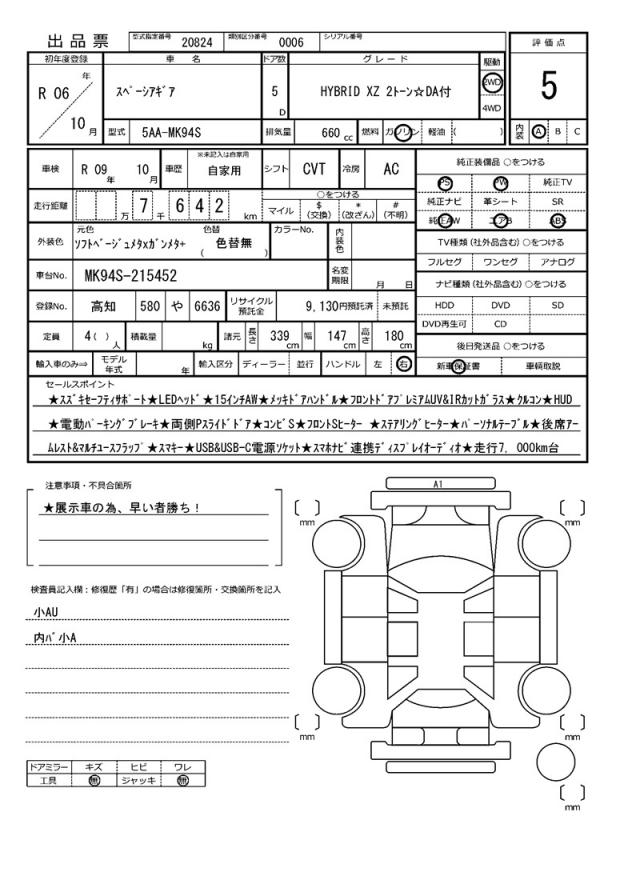 出品票 型式指定番号 20824 類別区分番号 0006 シリアル番号
評価点
5
内装 A B C
初年度登録 車名 ドア数 グレード 駆動
R 06 年 10 月 スペーシアギア 5 D HYBRID XZ 2トーン☆DA付 2WD 4WD
型式 5AA-MK94S 排気量 660 cc 燃料 ガソリン 軽油 ( )
車検 R 09 年 10 月 車歴 ※未記入は自家用 自家用 シフト CVT 冷房 AC
走行距離 万 7 千 6 4 2 km ○をつける マイル $ (交換) * (改ざん) # (不明)
外装色 元色 ソフトベージュメタxガンメタ+ 色替 ( 色替無 ) カラーNo. 内装色
車台No. MK94S-215452 名変期限 月 日
登録No. 高知 580 や 6636 リサイクル預託金 9,130円預託済 未預託
定員 4( ) 人 積載量 kg 諸元 長さ 339 cm 幅 147 cm 高さ 180 cm
輸入車のみ⇒ モデル年式 年 輸入区分 ディーラー 並行 ハンドル 左 右
純正装備品 ○をつける
PS PW 純正TV
純正ナビ 革シート SR
純正AW エアB ABS
TV種類 (社外品含む) ○をつける
フルセグ ワンセグ アナログ
ナビ種類 (社外品含む) ○をつける
HDD DVD SD
DVD再生可 CD
後日発送品 ○をつける
新車保証書 車輌取説
セールスポイント
★スズキセーフティサポート★LEDヘッド★15インチAW★メッキドアハンドル★フロントドアプレミアムUV&IRカットガラス★クルコン★HUD
★電動パーキングブレーキ★両側Pスライドドア★コンビS★フロントSヒーター ★ステアリングヒーター★パーソナルテーブル★後席アー
ムレスト&マルチユースフラップ★スマキー★USB&USB-C電源ソケット★スマホナビ連携ディスプレイオーディオ★走行7,000km台
注意事項・不具合箇所
★展示車の為、早い者勝ち!
検査員記入欄：修復歴「有」の場合は修復箇所・交換箇所を記入
小AU
内バ小A
ドアミラー キズ ヒビ ワレ
工具 無 ジャッキ 無
A1
mm
mm
mm
mm
mm